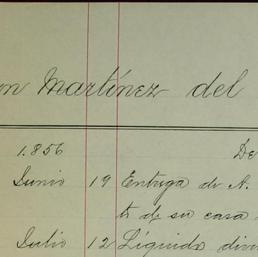 Martínez del
1.856 De
Junio 19 Entrega de A.
de su casa
Julio 12 Líquido divi